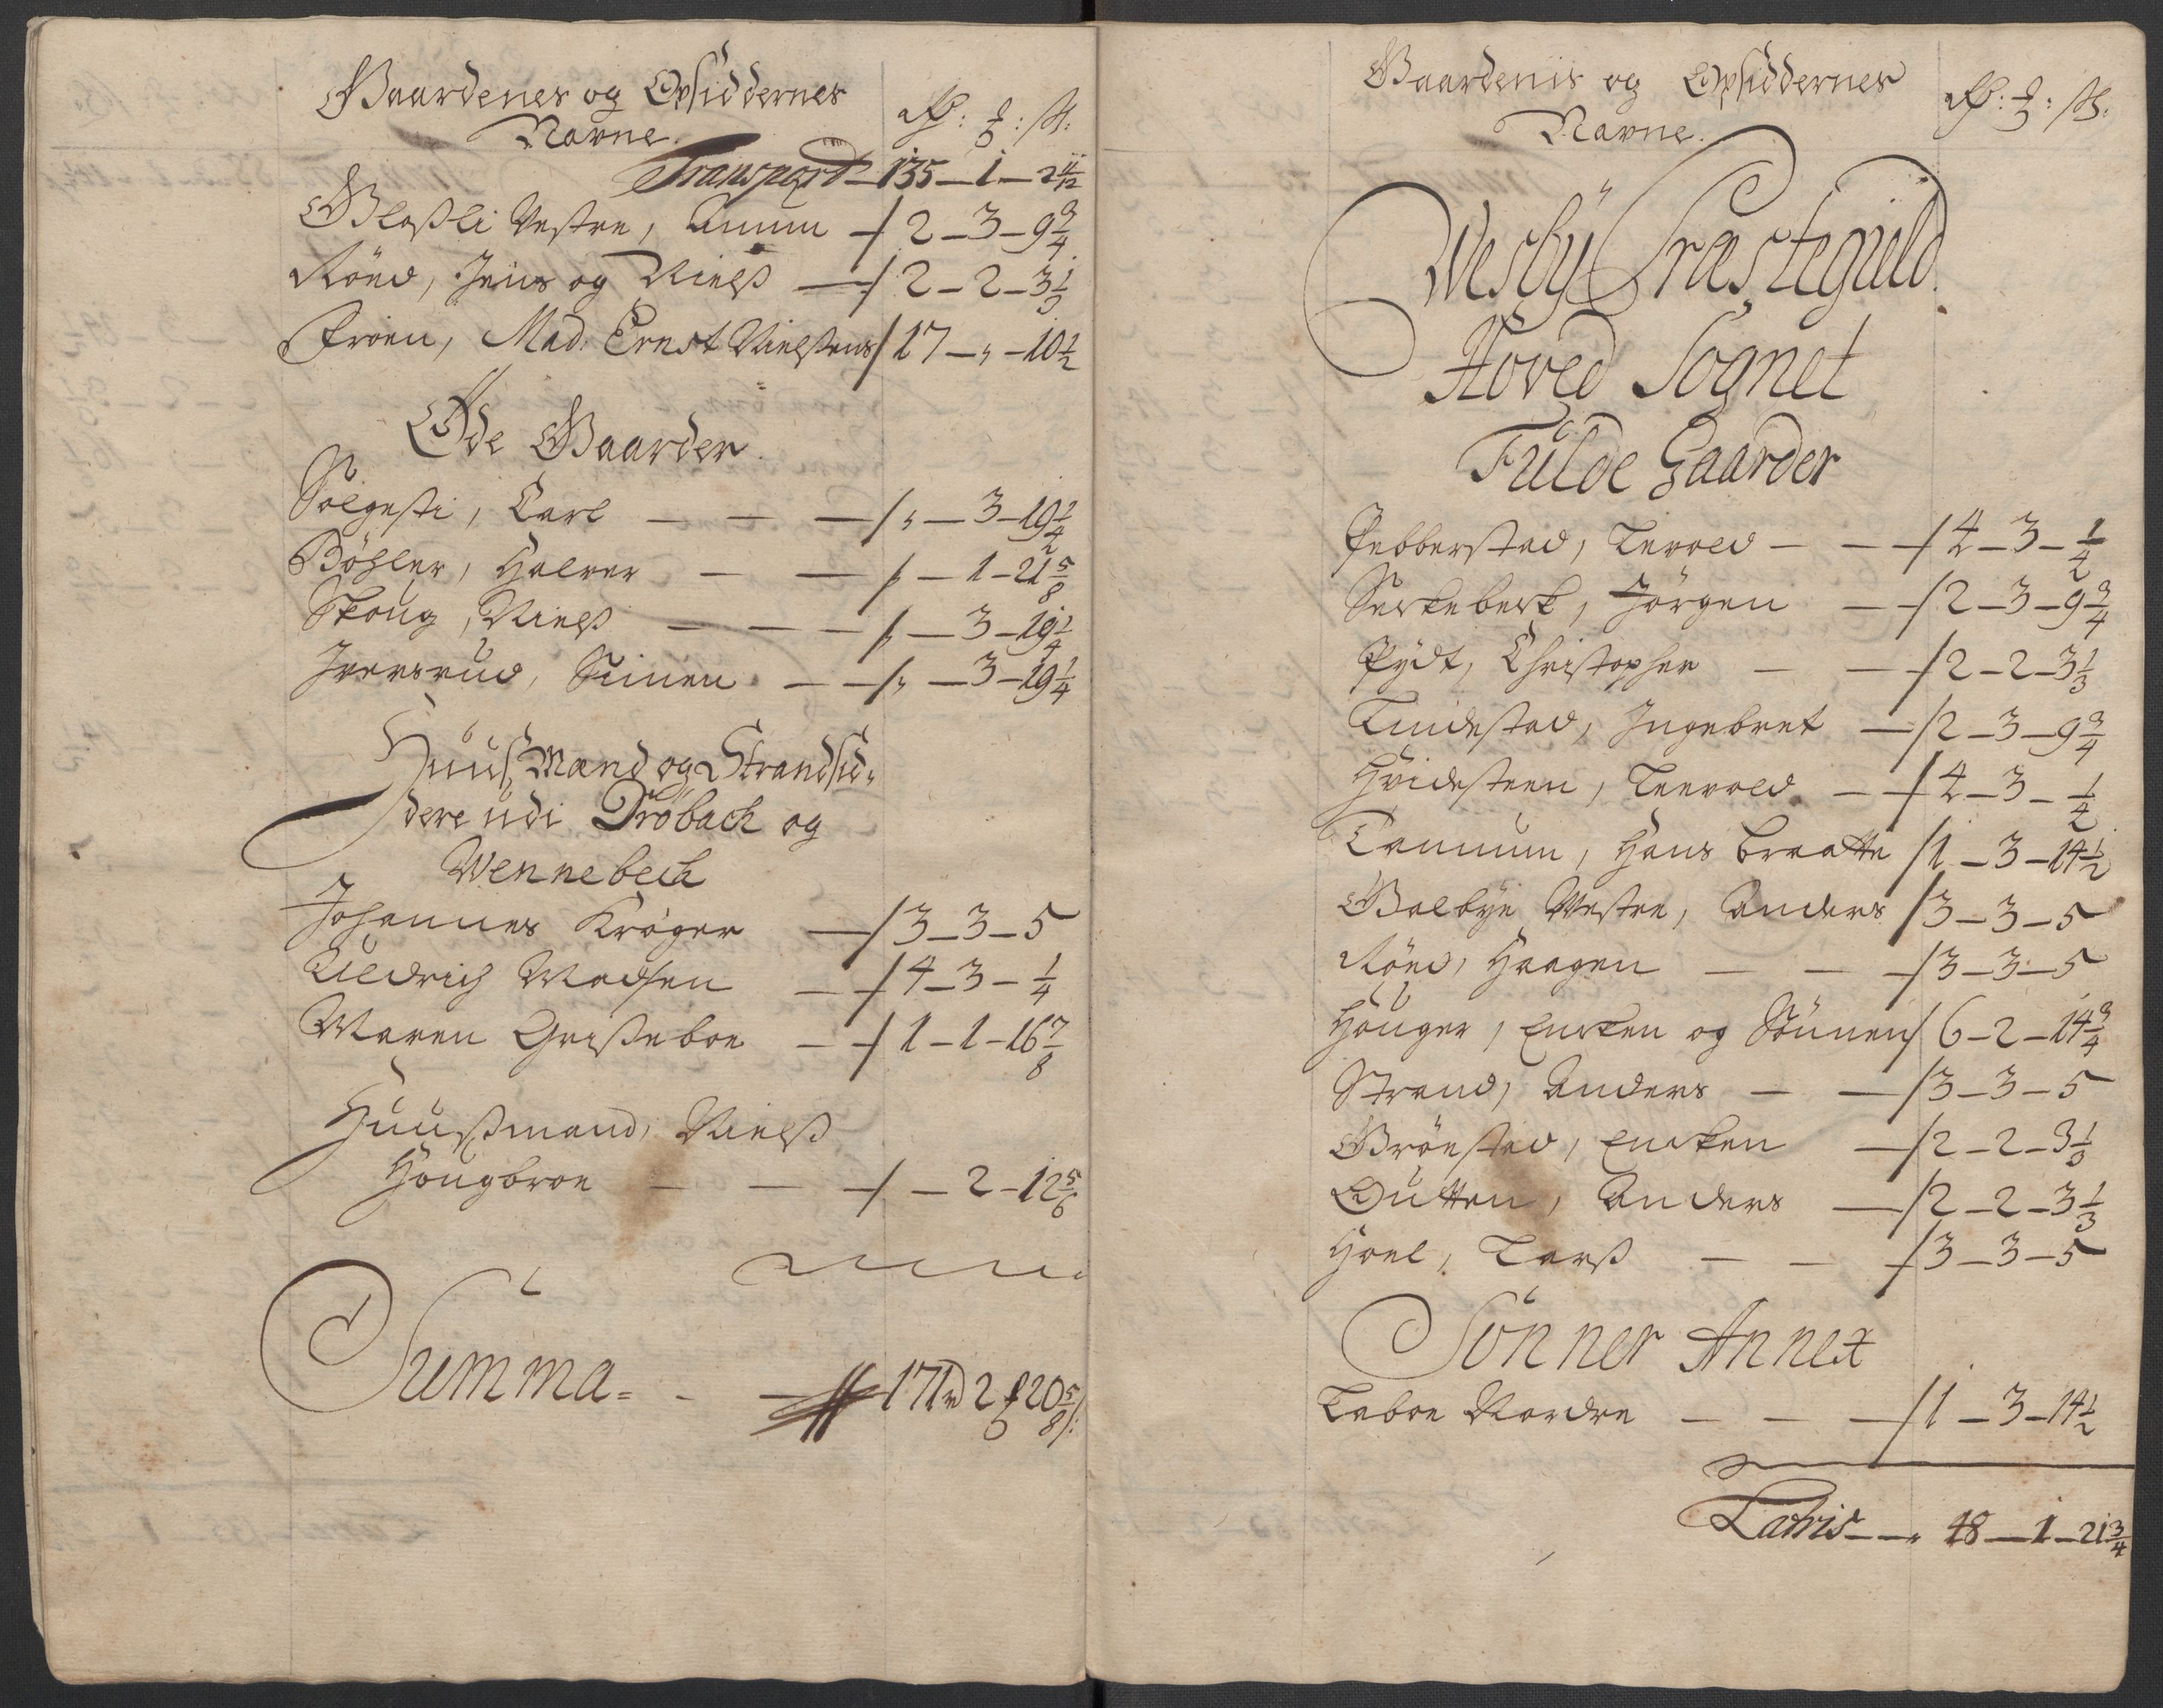 Gaardenes og Opsiddernes
Navne.
Rdr: ort: sk:
Transport – 135 – 1 – 2 11/12
Glaßli Vestre, Amun – / 2 – 3 – 9 3/4
Röed, Jens og Nielß – / 2 – 2 – 3 1/3
Froen, Mad: Ernst Nielsens / 17 – " – 10 1/2
Øde Gaarder.
Solgesti, Carl – – – / " – 3 – 19 1/4
Böhler, Halvor – – / " – 1 – 21 5/8
Skoug, Nielß – – – / " – 3 – 19 1/4
Iversrud, Simen – – / " – 3 – 19 1/4
Huuß Mænd og Strandsid-
dere udi Dröbach og
Wennebech
Johannes Kröger – / 3 – 3 – 5
Uldrich Madsen – – / 4 – 3 – 1/4
Maren Grißeboe – – / 1 – 1 – 16 7/8
Huußmand, Nielß
Hougbroe – – – / – 2 – 12 5/6
Summa – – 171 Rd 2 ort 20 5/8 s:
Gaardenis og Opsiddernes
Navne.
Rdr: ort: sk:
Wesby Præstegield.
Hoved Sognet
Fulde Gaarder
Pebberstad, Tevold – – / 4 – 3 – 1/4
Serkeberk, Jörgen – – / 2 – 3 – 9 3/4
Pydt, Christopher – – / 2 – 2 – 3 1/3
Tindestad, Ingebret – / 2 – 3 – 9 3/4
Hvidsteen, Teevold – – / 4 – 3 – 1/4
Tannum, Hans Braatte / 1 – 3 – 14 1/2
Galbye Vestre, Anders / 3 – 3 – 5
Röed, Haagen – – – / 3 – 3 – 5
Höuger, Encken og Sönnen / 6 – 2 – 14 3/4
Strand, Anders – – / 3 – 3 – 5
Grönstad, Encken – / 2 – 2 – 3 1/3
Outten, Anders – / 2 – 2 – 3 1/3
Hoel, Larß – – – / 3 – 3 – 5
Sönner Annex
Laboe Nordre – – – / 1 – 3 – 14 1/2
Latris – – 48 – 1 – 21 3/4